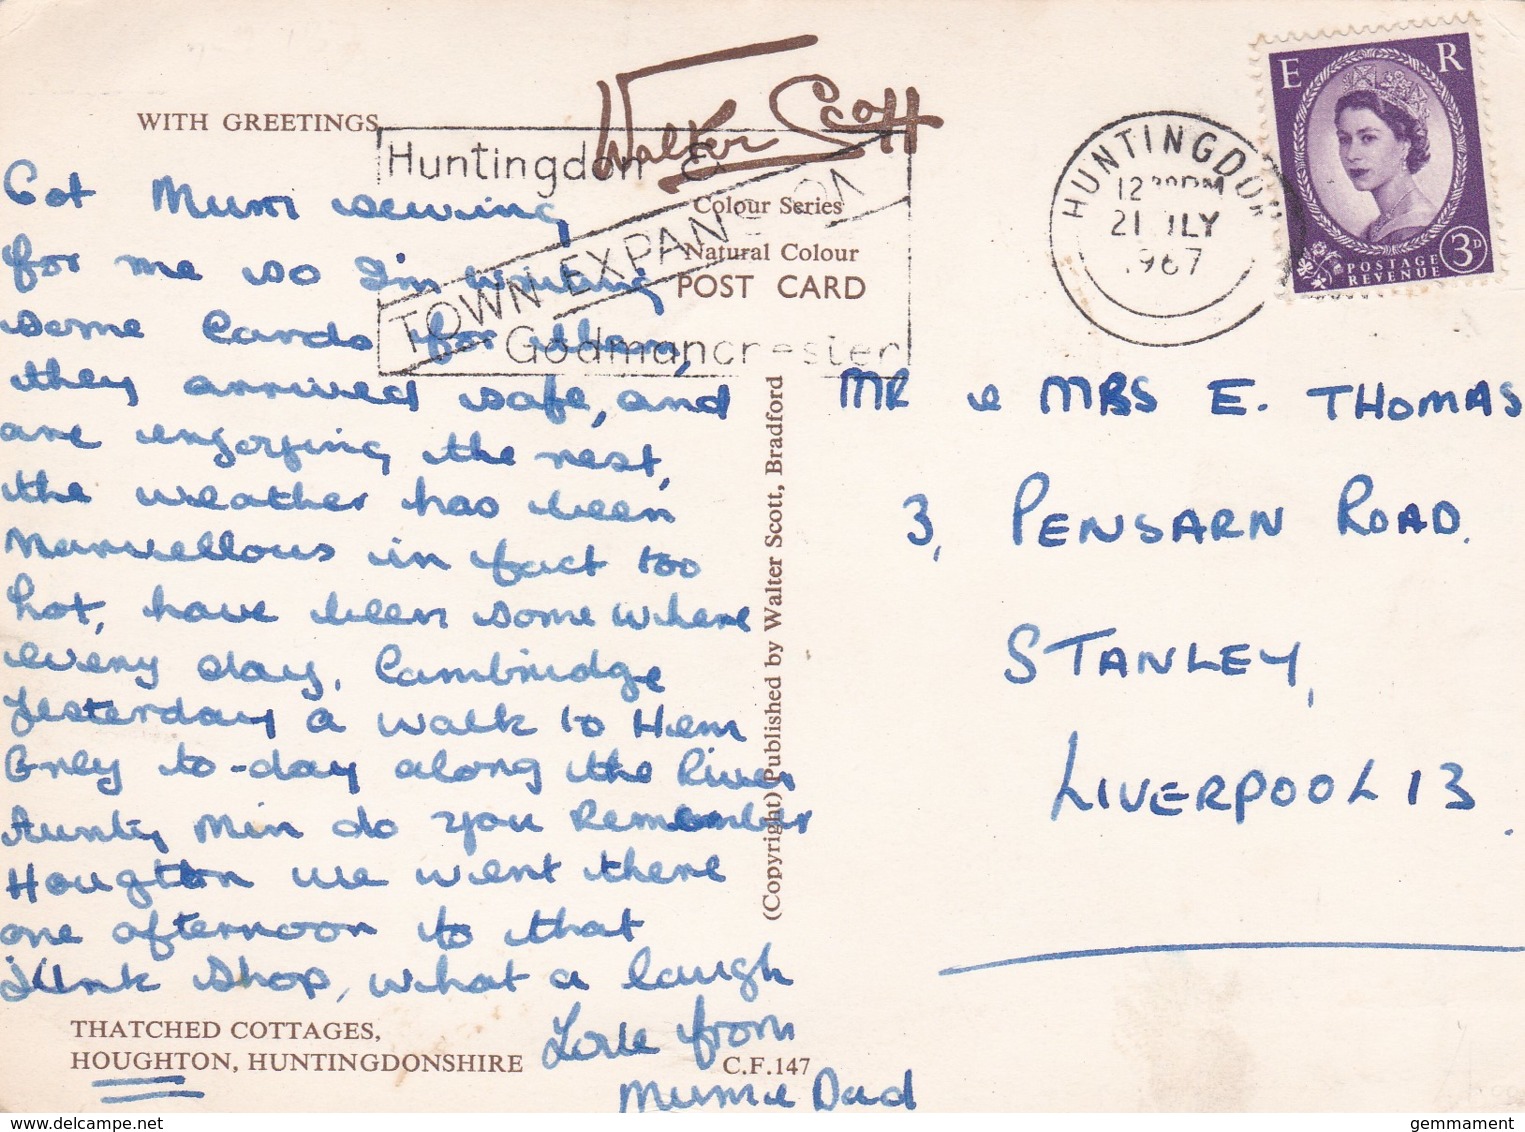 WITH GREETINGS
Walter Scott
Colour Series
Natural Colour
POST CARD
Huntingdon &
Godmanchester
TOWN EXPANSION
HUNTINGDON
12 30PM
21 JLY
1967
E R
3D
POSTAGE
REVENUE
Got Mum sewing
for me so I'm writing
some cards for them,
they arrived safe, and
are enjoying the rest,
the weather has been
marvellous in fact too
hot, have been some where
every day, Cambridge
Yesterday a walk to Hem
Grey to-day along the River
Aunty Min do you Remember
Houghton we went there
one afternoon to that
Junk Shop, what a laugh
Love from
Mum & Dad
THATCHED COTTAGES,
HOUGHTON, HUNTINGDONSHIRE
C.F.147
(Copyright) Published by Walter Scott, Bradford
MR & MRS E. THOMAS
3, PENSARN ROAD.
STANLEY,
LIVERPOOL 13.
gemmament